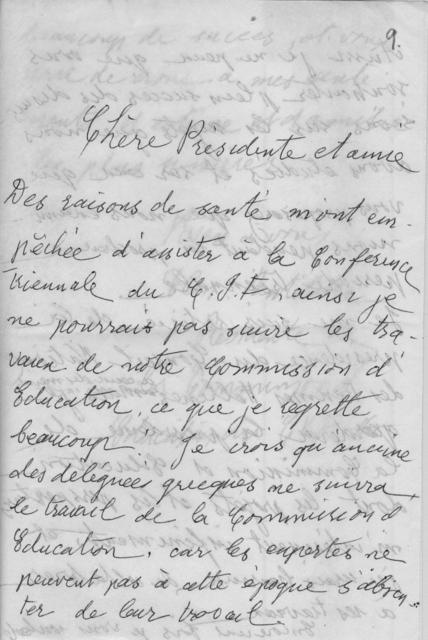 9.
Chère Présidente et amie
Des raisons de santé m'ont em-
pêchée d'assister à la Conférence
triennale du C.I.F, ainsi je
ne pourrais pas suivre les tra-
vaux de notre Commission d'
Education, ce que je regrette
beaucoup. Je crois qu'aucune
des déléguées grecques ne suivra
le travail de la Commission d'
Education, car les expertes ne
peuvent pas à cette époque s'absen-
ter de leur travail